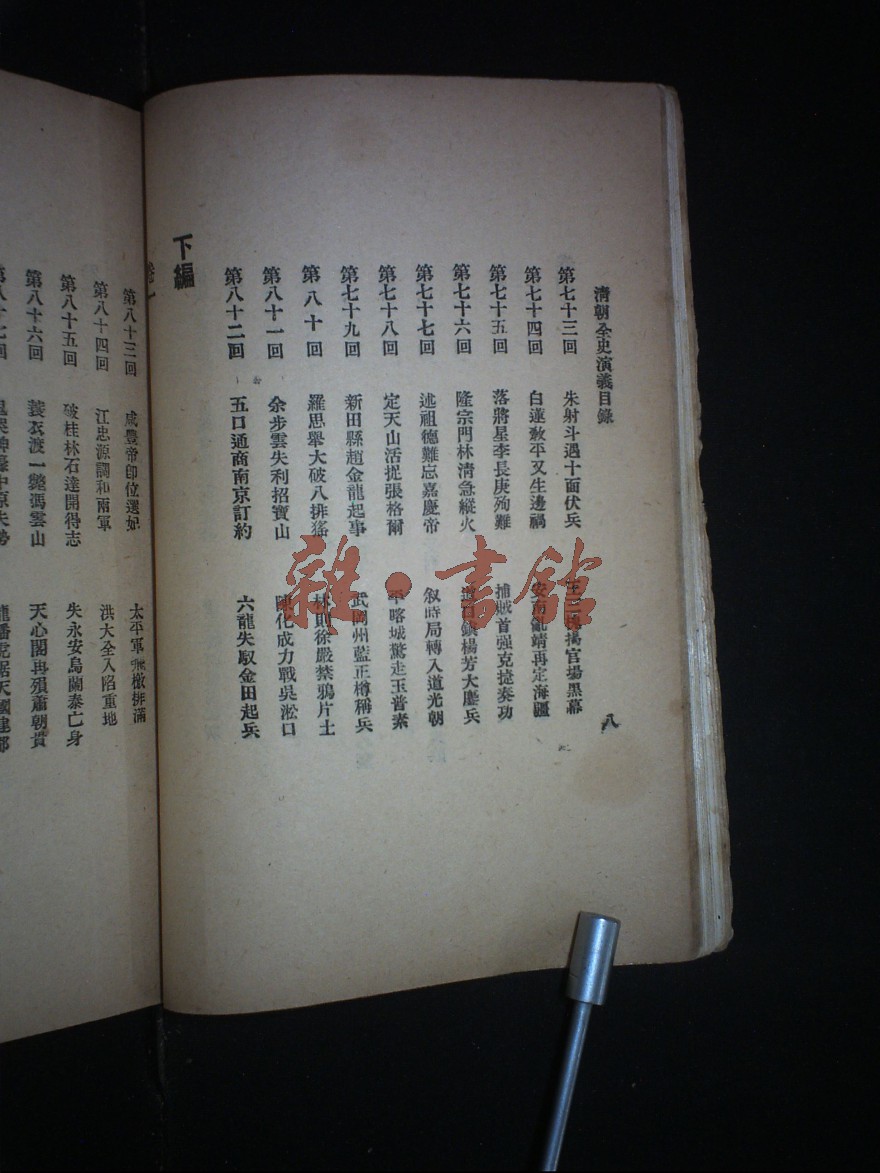 清朝全史演義目錄
八
第七十三回 朱射斗遇十面伏兵 王三槐揭官場黑幕
第七十四回 白蓮教平又生邊禍 安南亂靖再定海疆
第七十五回 落將星李長庚殉難 捕賊首强克捷奏功
第七十六回 隆宗門林清急縱火 道口鎮楊芳大鏖兵
第七十七回 述祖德難忘嘉慶帝 叙時局轉入道光朝
第七十八回 定天山活捉張格爾 平略城驚走玉普素
第七十九回 新田縣趙金龍起事 武岡州藍正樽稱兵
第八十回 羅思舉大破八排猺 林則徐嚴禁鴉片土
第八十一回 余步雲失利招寶山 陳化成力戰吳淞口
第八十二回 五口通商南京訂約 六龍失馭金田起兵
下編
第八十三回 咸豐帝卽位選妃 太平軍檄排滿
第八十四回 江忠源調和兩軍 洪大全入陷重地
第八十五回 破桂林石達開得志 失永安烏蘭泰亡身
第八十六回 蓑衣渡一斃馮雲山 天心閣再殞蕭朝貴
雜·書館